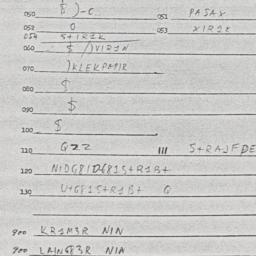 050 $ )-C 051 PASAX
052 0 053 XIR1K
054 S+IR1K
060 $ /)VIR1N
070 )KLEKPAPIR
080 $
090 $
100 $
110 G22 111 S+RAJFDE
120 NIDG81D681S+R1B+
130 U+G81S+R1B+ G
900 KR1M3R NIN
900 LAING83R NIA